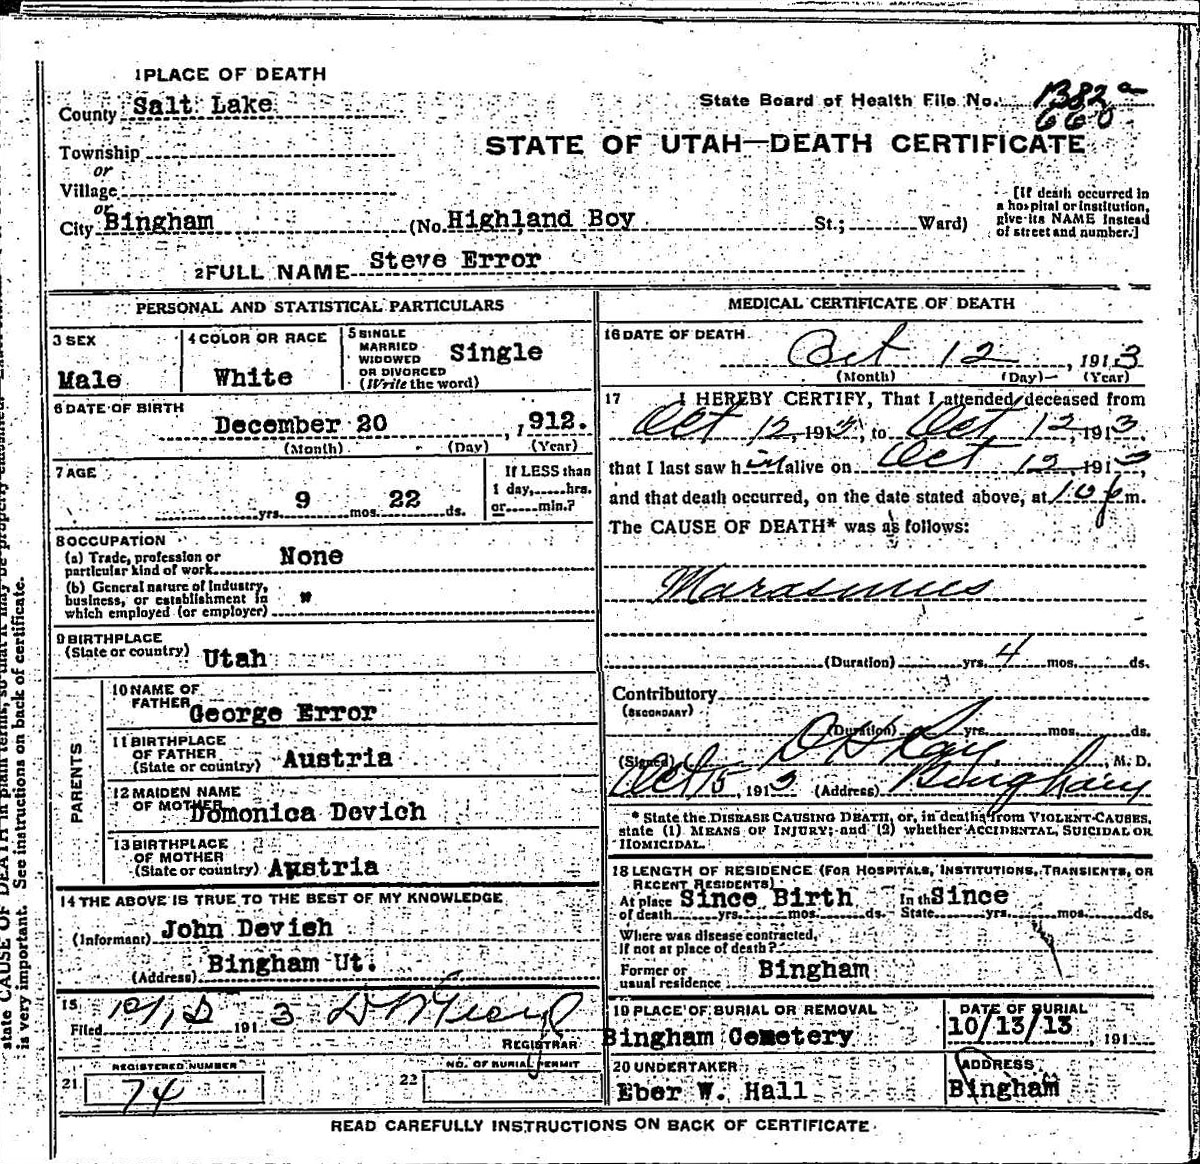 1 PLACE OF DEATH
County Salt Lake
State Board of Health File No. 1382a
660
Township
STATE OF UTAH—DEATH CERTIFICATE
or
Village
or
City Bingham (No. Highland Boy St.; Ward)
[If death occurred in
a hospital or institution,
give its NAME instead
of street and number.]
2 FULL NAME Steve Error
PERSONAL AND STATISTICAL PARTICULARS
3 SEX
Male
4 COLOR OR RACE
White
5 SINGLE
MARRIED
WIDOWED
OR DIVORCED
(Write the word)
Single
6 DATE OF BIRTH
December 20, 1912.
(Month) (Day) (Year)
7 AGE
yrs. 9 mos. 22 ds.
If LESS than
1 day, hrs.
or min.?
8 OCCUPATION
(a) Trade, profession or
particular kind of work None
(b) General nature of industry,
business, or establishment in
which employed (or employer) "
9 BIRTHPLACE
(State or country) Utah
PARENTS
10 NAME OF
FATHER George Error
11 BIRTHPLACE
OF FATHER
(State or country) Austria
12 MAIDEN NAME
OF MOTHER Domonica Devich
13 BIRTHPLACE
OF MOTHER
(State or country) Austria
14 THE ABOVE IS TRUE TO THE BEST OF MY KNOWLEDGE
(Informant) John Devich
(Address) Bingham Ut.
15
Filed 191 3
REGISTRAR
REGISTERED NUMBER
21 74
NO. OF BURIAL PERMIT
22
MEDICAL CERTIFICATE OF DEATH
16 DATE OF DEATH
Oct 12, 1913
(Month) (Day) (Year)
17 I HEREBY CERTIFY, That I attended deceased from
Oct 12, 1913, to Oct 12, 1913,
that I last saw him alive on Oct 12, 1913,
and that death occurred, on the date stated above, at 10 p m.
The CAUSE OF DEATH* was as follows:
Marasmus
(Duration) yrs. 4 mos. ds.
Contributory
(SECONDARY)
(Duration) yrs. mos. ds.
(Signed) D H Ray, M. D.
Oct 15, 1913 (Address) Bingham
* State the DISEASE CAUSING DEATH, or, in deaths from VIOLENT CAUSES,
state (1) MEANS OF INJURY; and (2) whether ACCIDENTAL, SUICIDAL OR
HOMICIDAL.
18 LENGTH OF RESIDENCE (FOR HOSPITALS, INSTITUTIONS, TRANSIENTS, OR
RECENT RESIDENTS)
At place Since Birth In the Since
of death yrs. mos. ds. State yrs. mos. ds.
Where was disease contracted,
If not at place of death?
Former or
usual residence Bingham
19 PLACE OF BURIAL OR REMOVAL
Bingham Cemetery
DATE OF BURIAL
10/13/13, 191
20 UNDERTAKER
Eber W. Hall
ADDRESS
Bingham
READ CAREFULLY INSTRUCTIONS ON BACK OF CERTIFICATE.
state CAUSE OF DEATH in plain terms, so that it may be properly classified.
is very important. See instructions on back of certificate.